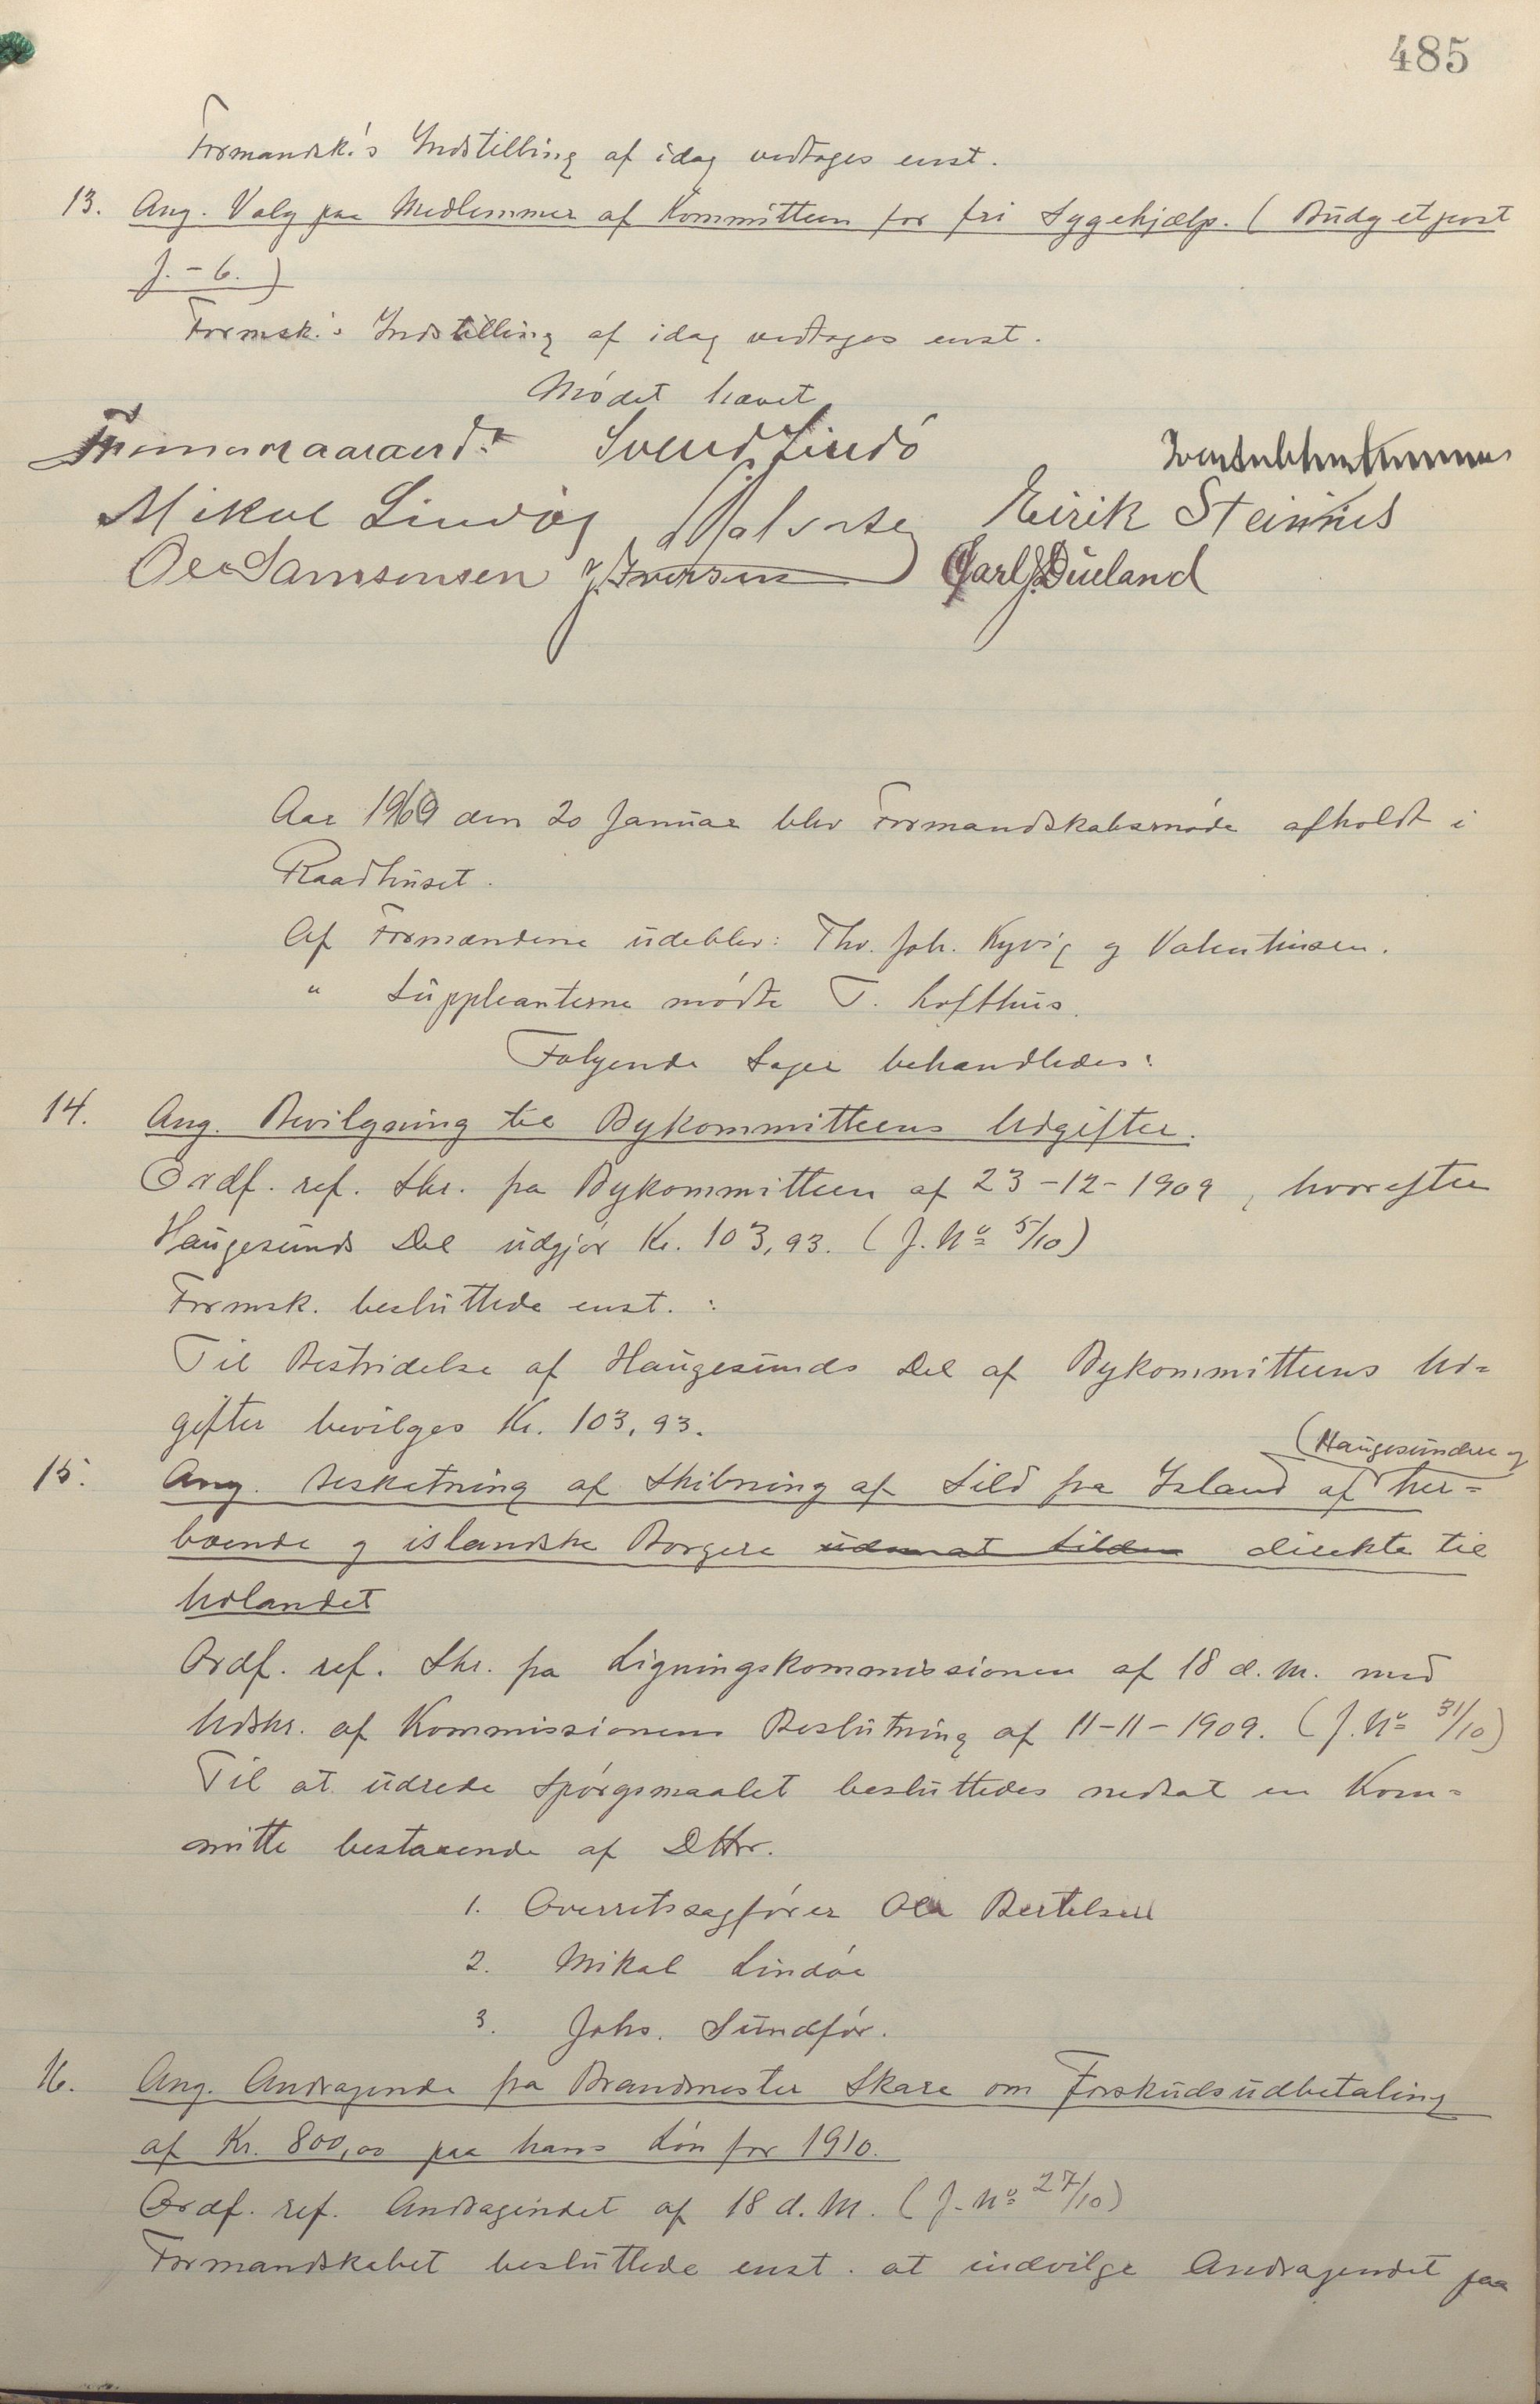 485
Formandsk.'s Indstilling af idag vedtages enst.
13. Ang. Valg paa Medlemmer af Kommitteen for fri Sygehjælp. (Budgetpost
J. - 6. )
Formsk.'s Indstilling af idag vedtages enst.
Mødet hævet
Svend Lindø
Mikal Lindøe Eirik Steinnes
Ole Samsonsen J. Iversen Carl J. Dueland
Aar 1910 den 20 Januar blev Formandskabsmøde afholdt i
Raadhuset.
Af Formændene udeblev: Thv. Joh. Kyvig og Valentinsen.
" Suppleanterne mødte T. Lofthus.
Følgende Sager behandledes:
14. Ang. Bevilgning til Bykommitteens Udgifter.
Ordf. ref. Skr. fra Bykommitteen af 23-12-1909, hvorefter
Haugesunds Del udgjør Kr. 103,93. (J. No 5/10)
Formsk. besluttede enst. :
Til Bestridelse af Haugesunds Del af Bykommitteens Ud=
gifter bevilges Kr. 103,93.
(Haugesundere og
15. Ang. Beskatning af Skibning af Sild fra Island af her=
boende og islandske Borgere direkte til
Udlandet
Ordf. ref. Skr. fra Ligningskommissionen af 18 d.M. med
Udskr. af Kommissionens Beslutning af 11-11-1909. (J. No 31/10)
Til at udrede Spørgsmaalet besluttedes nedsat en Kom=
mitte bestaaende af DHrr.
1. Overretssagfører Ole Bertelsen
2. Mikal Lindøe
3. Johs. Sundfør.
16. Ang. Andragende fra Brandmester Skare om Forskudsudbetaling
af Kr. 800,00 paa hans Løn for 1910.
Ordf. ref. Andragendet af 18 d.M. (J. No 27/10)
Formandskabet besluttede enst. at indvilge Andragendet paa